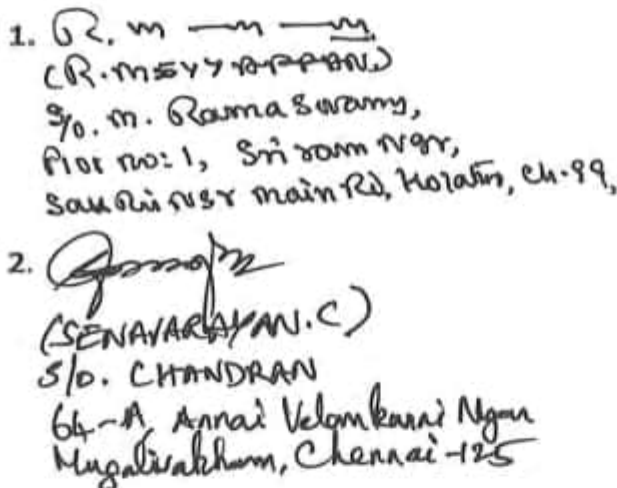 1. R. m
(R. MEYYAPPAN)
S/o. m. Ramaswamy,
Plot no: 1, Sri ram Ngr,
Main Rd, Ch-99,
2.
(SENAVARAYAN.C)
S/o. CHANDRAN
64-A, Annai Velankanni Ngar
Mugalivakkam, Chennai-125